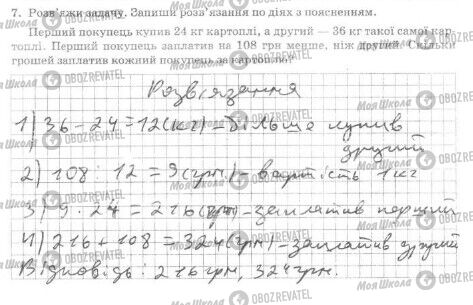 7. Розв'яжи задачу. Запиши розв'язання по діях з поясненням.
Перший покупець купив 24 кг картоплі, а другий — 36 кг такої самої кар-
топлі. Перший покупець заплатив на 108 грн менше, ніж другий. Скільки
грошей заплатив кожний покупець за картоплю?
Розв'язання
1) 36 - 24 = 12 (кг) - більше купив
другий
2) 108 : 12 = 9 (грн) - вартість 1 кг
3) 9 · 24 = 216 (грн) - заплатив перший
4) 216 + 108 = 324 (грн) - заплатив другий
Відповідь: 216 грн, 324 грн.